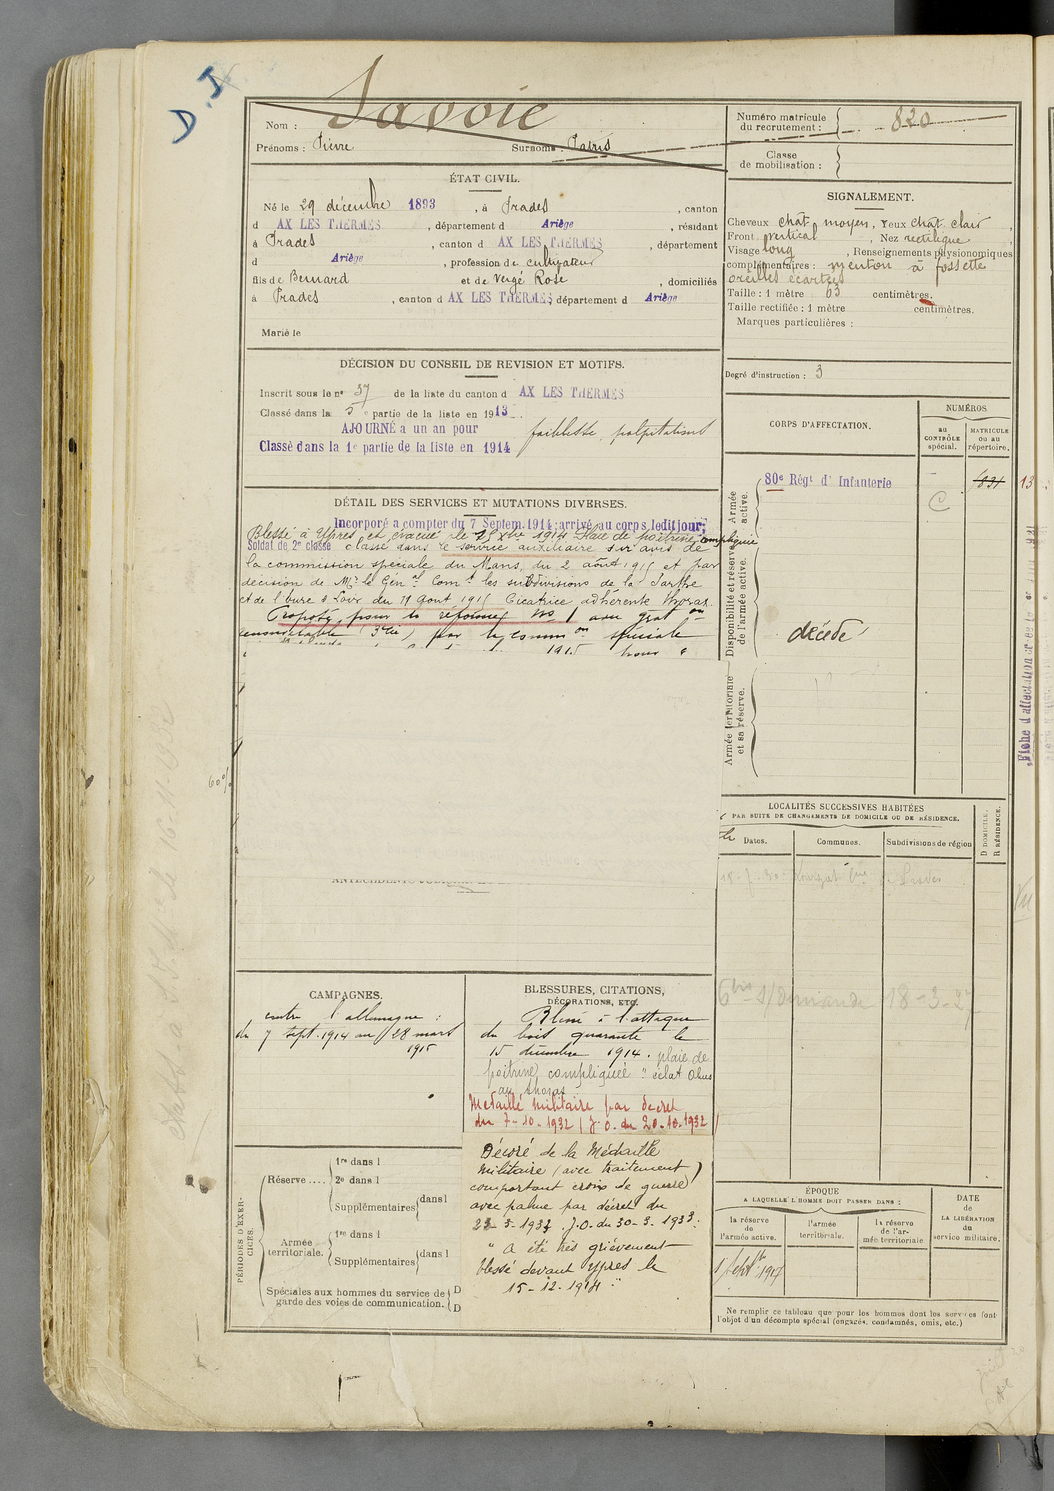 D. I
Savoie
Nom :
Prénoms : Pierre Surnoms :
Numéro matricule
du recrutement : 820
Classe
de mobilisation :
ÉTAT CIVIL.
Né le 29 décembre 1893, à Prades, canton
d AX LES THERMES, département d Ariège, résidant
à Prades, canton d AX LES THERMES, département
d Ariège, profession de cultivateur
fils de Bernard et de Vergé Rose, domiciliés
à Prades, canton d AX LES THERMES, département d Ariège
Marié le
SIGNALEMENT.
Cheveux chat moyen, Yeux chat clair,
Front vertical, Nez rectiligne,
Visage long, Renseignements physionomiques
complémentaires : menton à fossette
oreilles écartées
Taille : 1 mètre 63 centimètres.
Taille rectifiée : 1 mètre centimètres.
Marques particulières :
Degré d'instruction : 3
DÉCISION DU CONSEIL DE REVISION ET MOTIFS.
Inscrit sous le n° 37 de la liste du canton d AX LES THERMES
Classé dans la 5e partie de la liste en 1913.
AJOURNÉ a un an pour faiblesse, palpitations
Classé dans la 1e partie de la liste en 1914
CORPS D'AFFECTATION.
NUMÉROS
au
CONTRÔLE
spécial.
MATRICULE
ou au
répertoire.
Armée
active.
80e Régt d' Infanterie
C
13
Disponibilité et réserve
de l'armée active.
décédé
Armée territoriale
et sa réserve.
DÉTAIL DES SERVICES ET MUTATIONS DIVERSES.
Incorporé a compter du 7 Septem. 1914; arrivé au corps ledit jour;
Soldat de 2e classe
Blessé à Ypres et évacué le 15 Xbre 1914 Plaie de poitrine compliquée
classé dans le service auxiliaire sur avis de
la commission spéciale du Mans, du 2 août 1915 et par
décision de Mr le Genal Comt les subdivisions de la Sarthe
et de l'Eure & Loir du 11 Aout 1915 Cicatrice adhérente thorax.
Proposé pour la réforme No 1 avec graton
renouvelable (3e cie) par la Common spéciale
1915
60%
ANTÉCÉDENTS
LOCALITÉS SUCCESSIVES HABITÉES
PAR SUITE DE CHANGEMENTS DE DOMICILE OU DE RÉSIDENCE.
Dates.
Communes.
Subdivisions de région
D DOMICILE.
R RÉSIDENCE.
18-3-27
CAMPAGNES.
contre l'allemagne :
du 7 sept. 1914 au 28 mars
1915
BLESSURES, CITATIONS,
DÉCORATIONS, ETC.
Blessé à l'attaque
du bois quarante le
15 décembre 1914. plaie de
poitrine compliquée "éclat obus
au thorax
Médaillé militaire par décret
du 7-10-1932 (J.O. du 20.10.1932)
Décoré de la Médaille
Militaire (avec traitement)
comportant croix de guerre
avec palme par décret du
J.O. du 30-3-1933:
" A été très grièvement
blessé devant Ypres le
15-12-1914 "
PÉRIODES D'EXERCICES.
Réserve ....
1re dans l
2e dans l
Supplémentaires dans l
Armée
territoriale.
1re dans l
Supplémentaires dans l
Spéciales aux hommes du service de
garde des voies de communication.
D
D
ÉPOQUE
A LAQUELLE L'HOMME DOIT PASSER DANS :
la réserve
de
l'armée active.
l'armée
territoriale.
la réserve
de l'ar-
mée territoriale
DATE
de
LA LIBÉRATION
du
service militaire.
Ne remplir ce tableau que pour les hommes dont les services font
l'objet d'un décompte spécial (engagés, condamnés, omis, etc.)